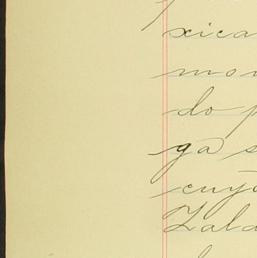 xica
mon
do p
ga s
cuyo
Zala